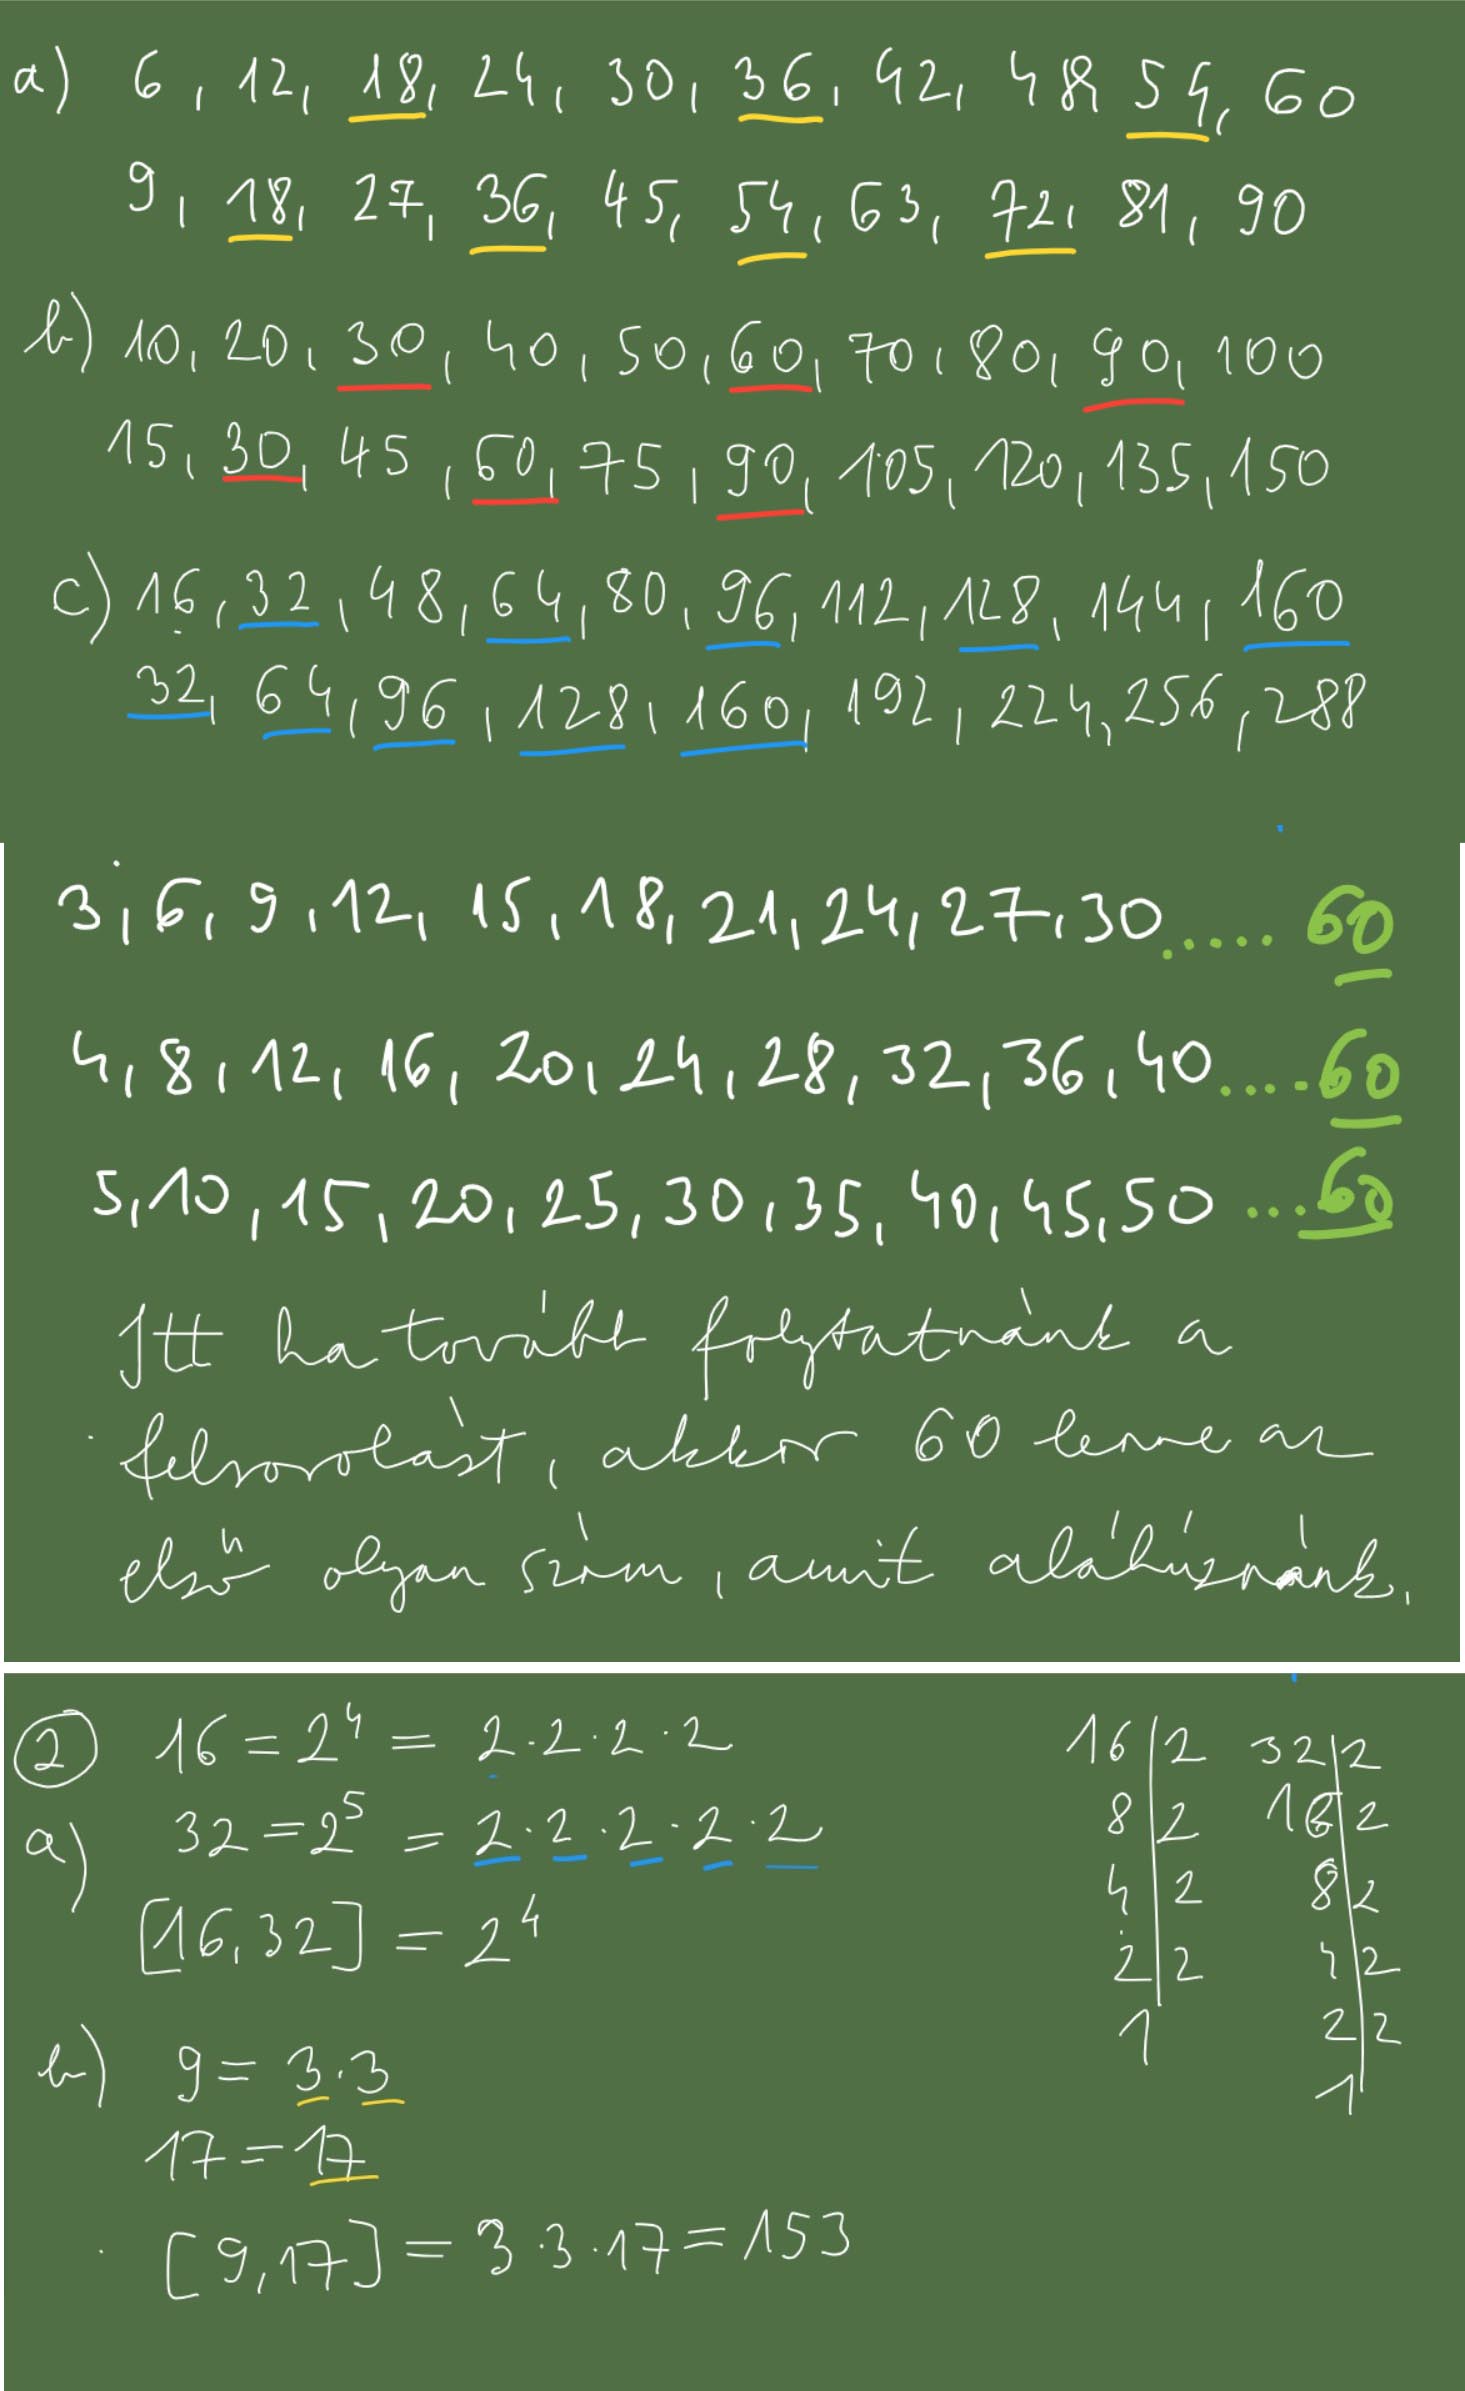 a) 6, 12, 18, 24, 30, 36, 42, 48, 54, 60
9, 18, 27, 36, 45, 54, 63, 72, 81, 90
b) 10, 20, 30, 40, 50, 60, 70, 80, 90, 100
15, 30, 45, 60, 75, 90, 105, 120, 135, 150
c) 16, 32, 48, 64, 80, 96, 112, 128, 144, 160
32, 64, 96, 128, 160, 192, 224, 256, 288
3, 6, 9, 12, 15, 18, 21, 24, 27, 30..... 60
4, 8, 12, 16, 20, 24, 28, 32, 36, 40.....60
5, 10, 15, 20, 25, 30, 35, 40, 45, 50 ....60
Itt ha tovább folytatnánk a
felsorolást, akkor 60 lenne az
első olyan szám, amit aláhúznánk.
2 16 = 2⁴ = 2·2·2·2
a) 32 = 2⁵ = 2·2·2·2·2
[16,32] = 2⁴
b) 9 = 3·3
17 = 17
[9,17] = 3·3·17 = 153
16|2 32|2
8|2 16|2
4|2 8|2
2|2 4|2
1 2|2
1